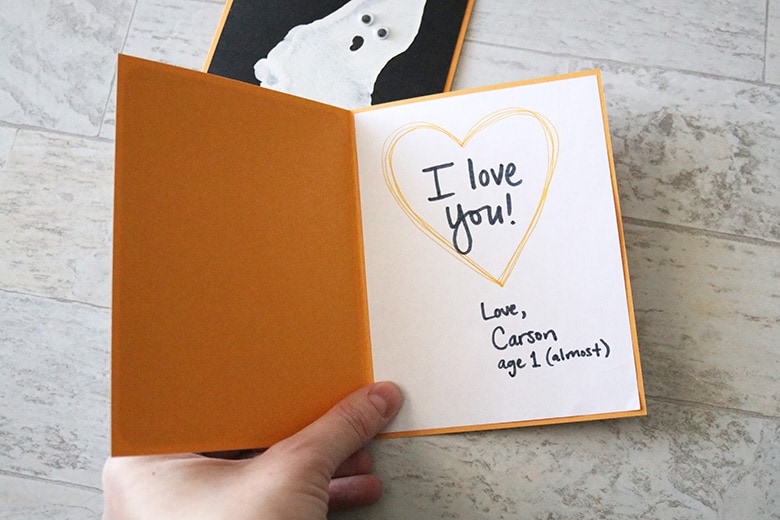 I love
you!
Love,
Carson
age 1 (almost)